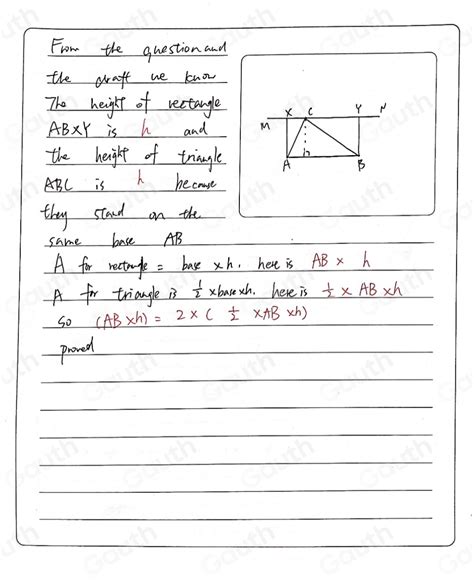 From the question and
the draft we know
The height of rectangle
ABXY is h and
the height of triangle
ABC is h because
they stand on the
same base AB
A for rectangle = base x h. here is AB x h
A for triangle is 1/2 x base x h. here is 1/2 x AB x h
so (AB x h) = 2 x ( 1/2 x AB x h)
proved
M X C Y N
h
A B
Gauth